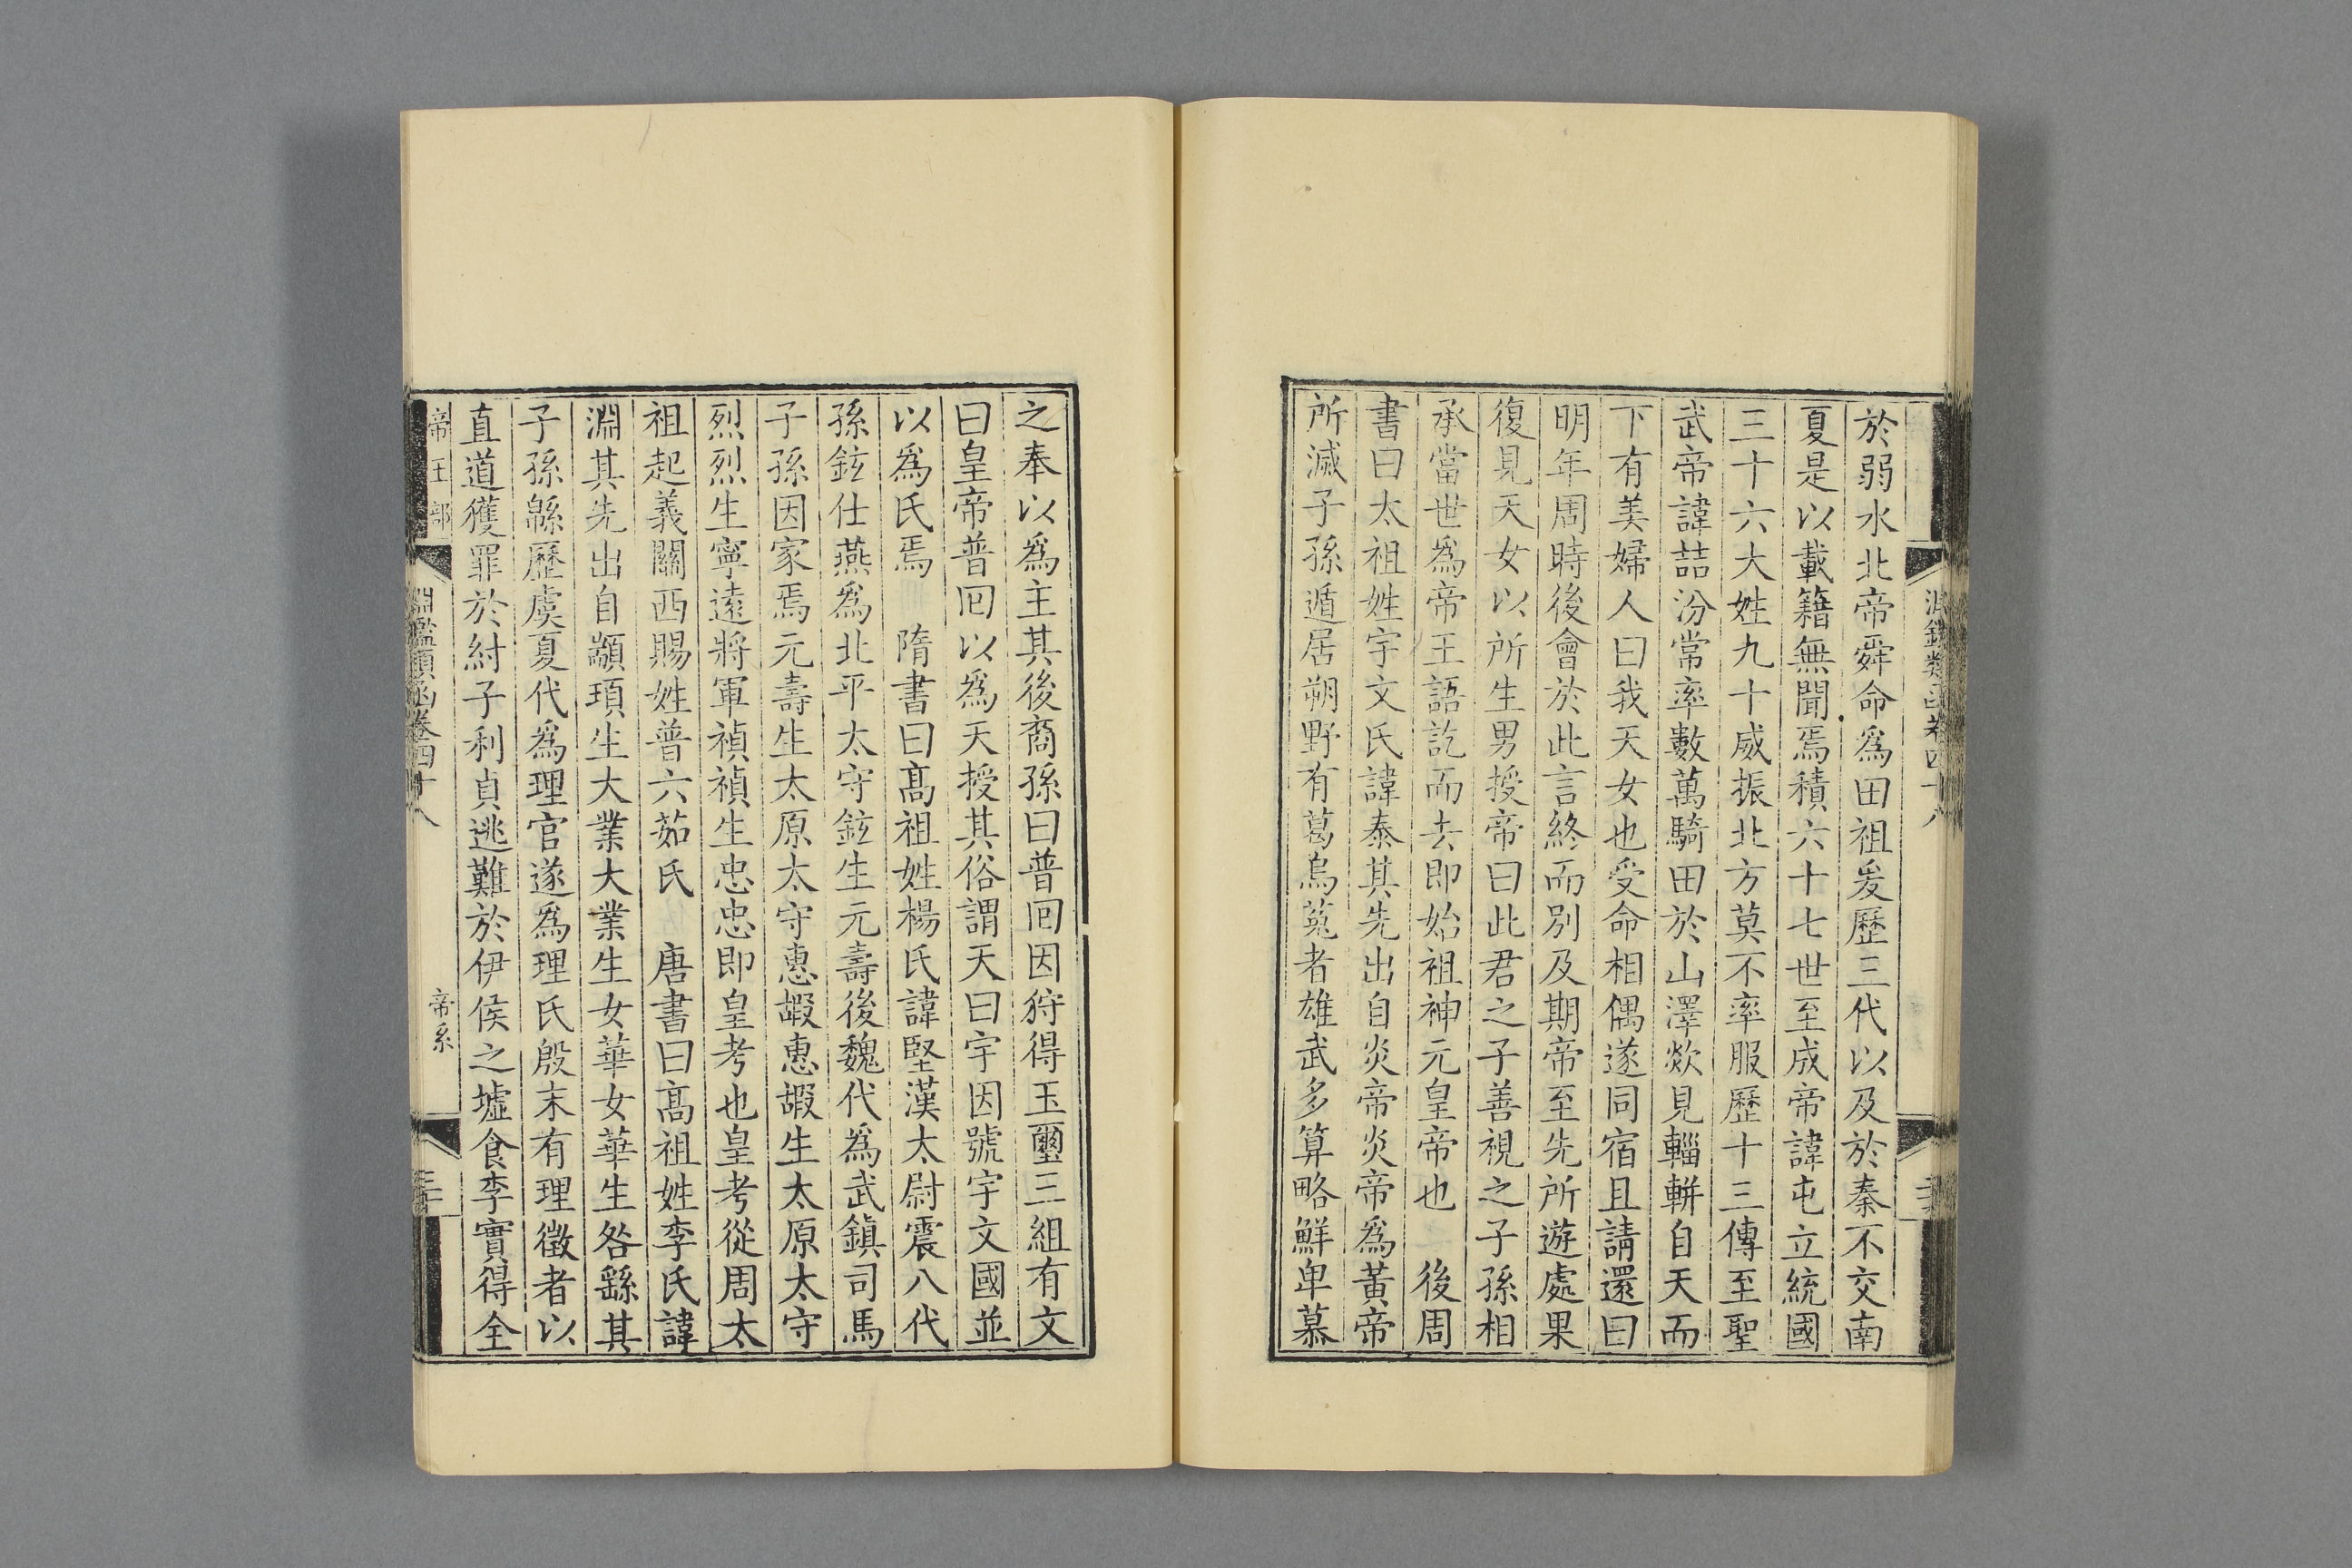 淵鑑類函卷四十八
於弱水北帝舜命爲田祖爰歷三代以及於秦不交南
夏是以載籍無聞焉積六十七世至成帝諱屯立統國
三十六大姓九十威振北方莫不率服歷十三傳至聖
武帝諱詰汾常率數萬騎田於山澤欻見輜軿自天而
下有美婦人曰我天女也受命相偶遂同宿且請還曰
明年周時後會於此言終而別及期帝至先所遊處果
復見天女以所生男授帝曰此君之子善視之子孫相
承當世爲帝王語訖而去即始祖神元皇帝也　後周
書曰太祖姓宇文氏諱泰其先出自炎帝炎帝爲黃帝
所滅子孫遁居朔野有葛烏菟者雄武多算略鮮卑慕
之奉以爲主其後裔孫曰普囘因狩得玉璽三組有文
曰皇帝普囘以爲天授其俗謂天曰宇因號宇文國並
以爲氏焉　隋書曰高祖姓楊氏諱堅漢太尉震八代
孫鉉仕燕爲北平太守鉉生元壽後魏代爲武鎭司馬
子孫因家焉元壽生太原太守惠嘏惠嘏生太原太守
烈烈生寧遠將軍禎禎生忠忠即皇考也皇考從周太
祖起義關西賜姓普六茹氏　唐書曰高祖姓李氏諱
淵其先出自顓頊生大業大業生女華女華生咎繇其
子孫緜歷虞夏代爲理官遂爲理氏殷末有理徵者以
直道獲罪於紂子利貞逃難於伊侯之墟食李實得全
帝王部
淵鑑類函卷四十八
帝系